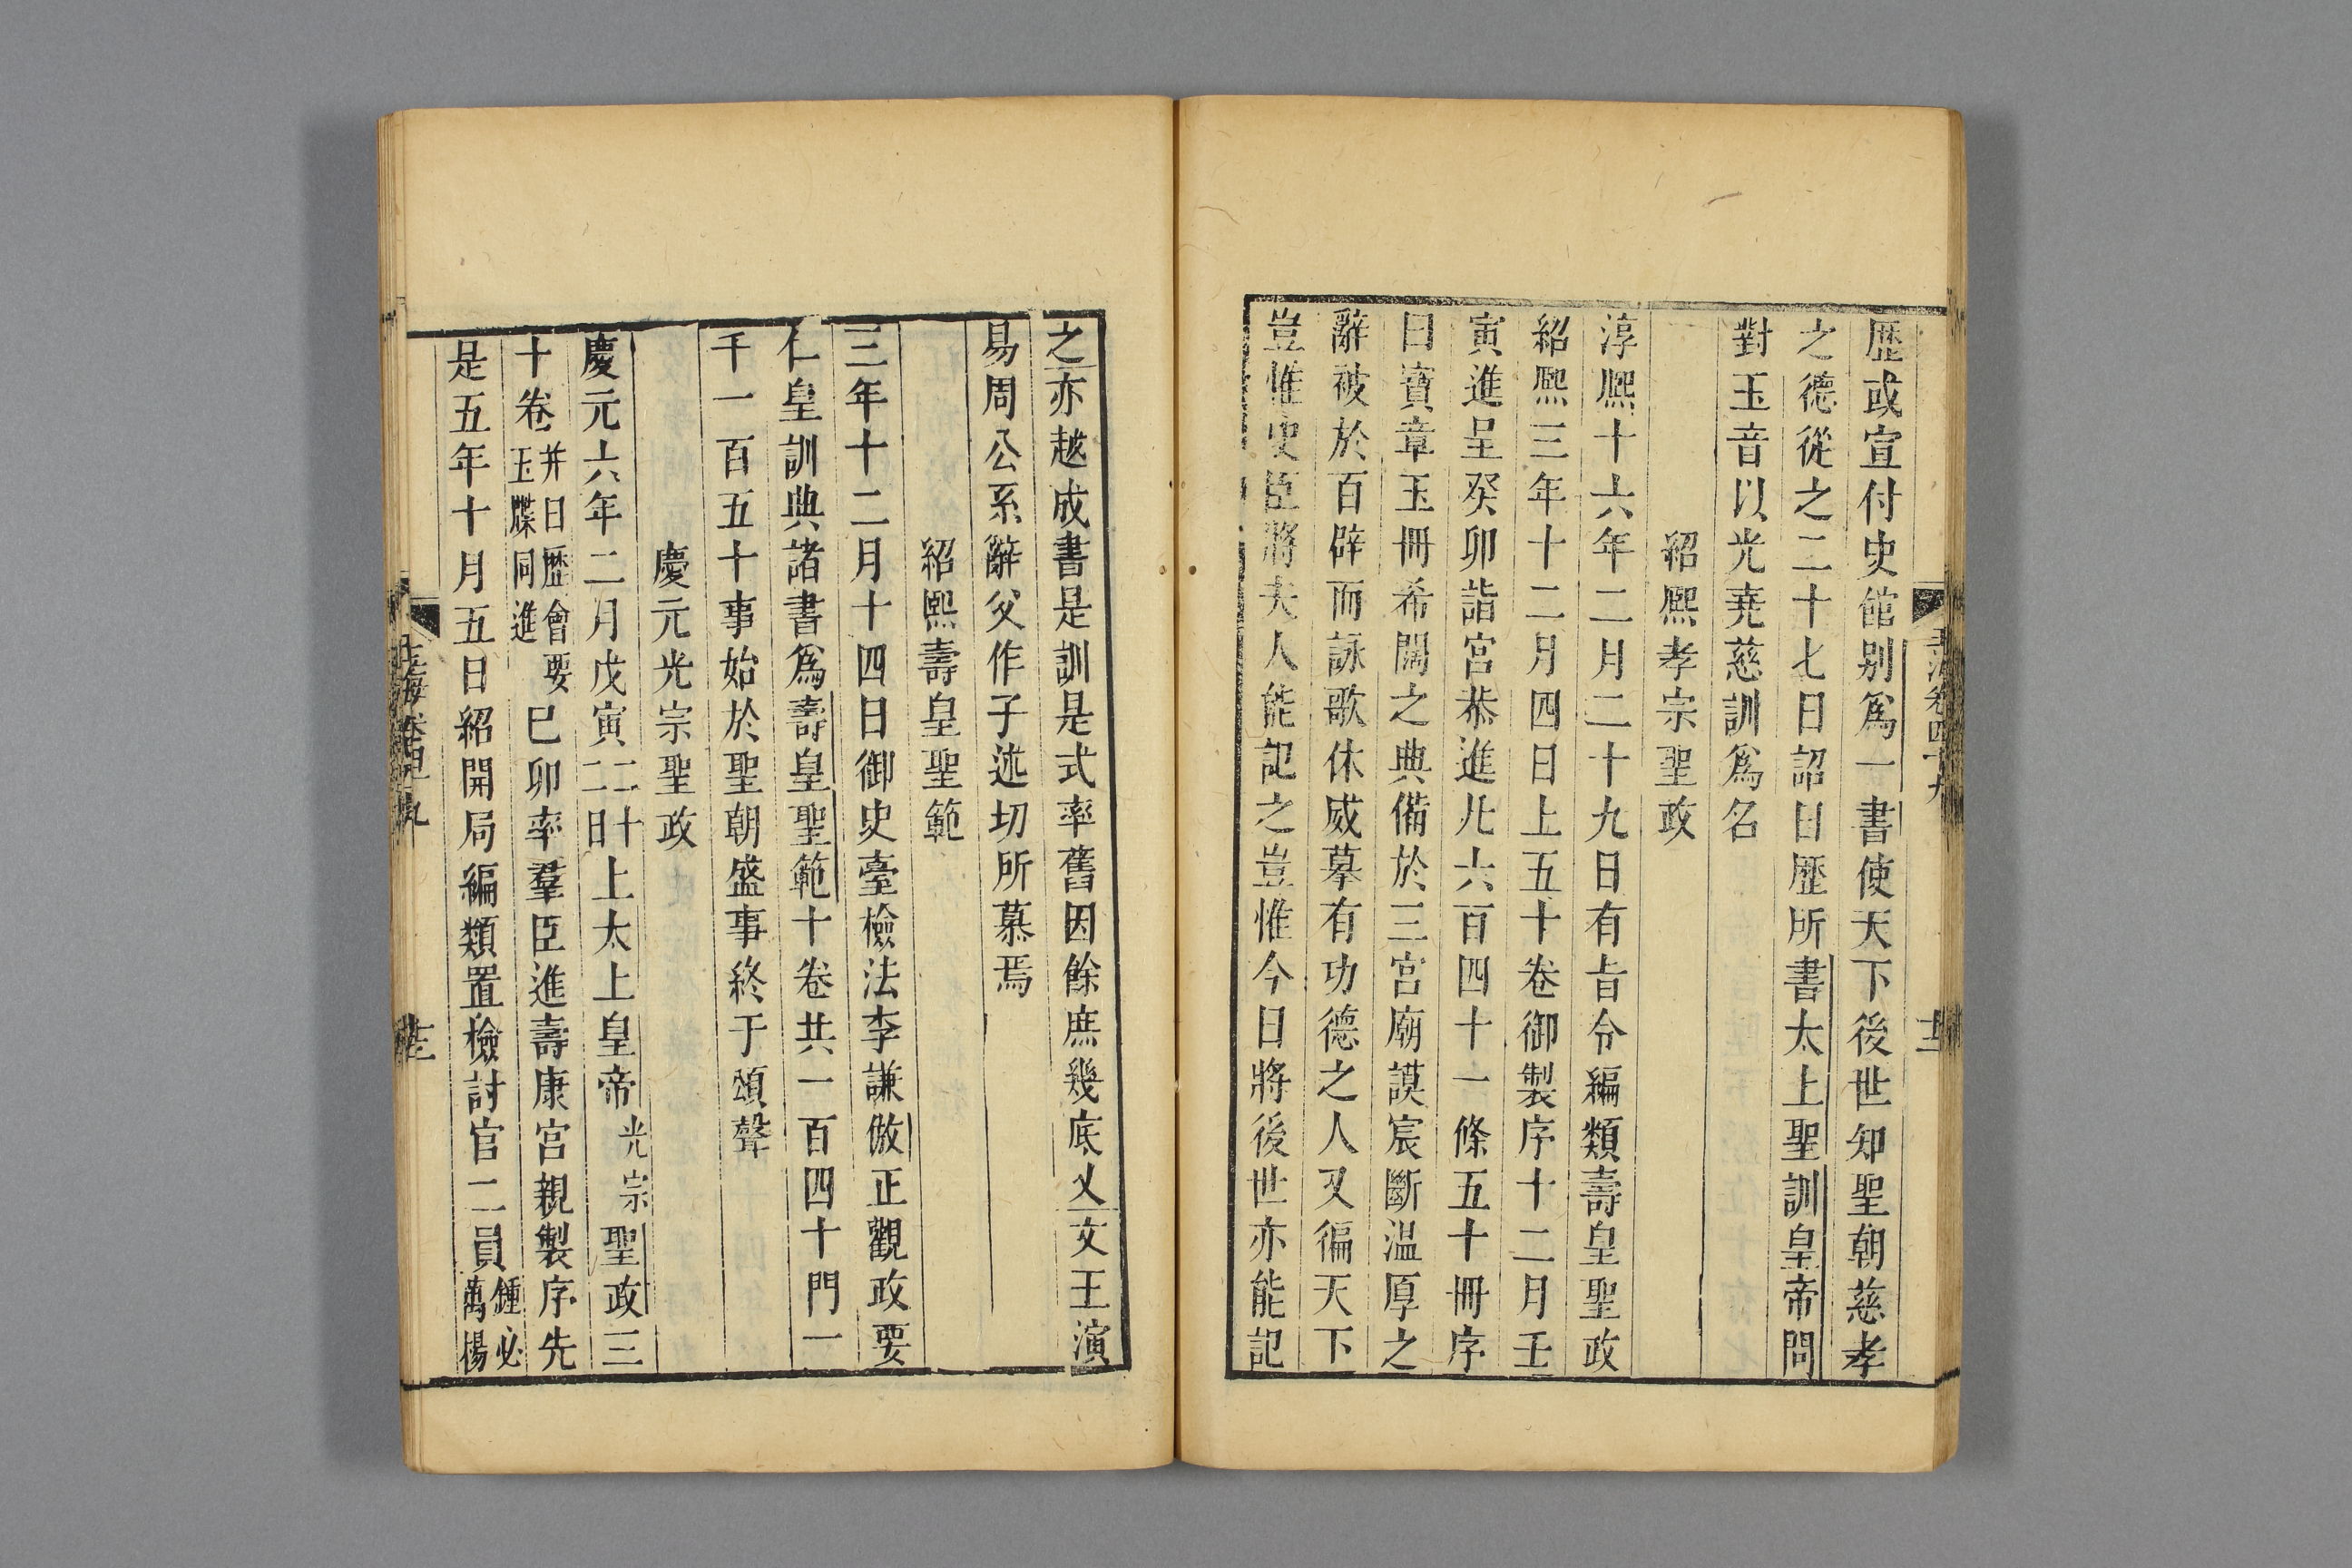 歷或宣付史館别爲一書使天下後世知聖朝慈孝
之德從之二十七日詔日歷所書太上聖訓皇帝問
對玉音以光堯慈訓爲名
紹熙孝宗聖政
淳熙十六年二月二十九日有旨令編類壽皇聖政
紹熙三年十二月四日上五十卷御製序十二月壬
寅進呈癸卯詣宮恭進凡六百四十一條五十冊序
曰寶章玉冊希闊之典備於三宮廟謨宸斷温厚之
辭被於百辟而詠歌休威摹有功德之人又徧天下
豈惟史臣將夫人能記之豈惟今日將後世亦能記
之亦越成書是訓是式率舊因餘庶幾底乂文王演
易周公系辭父作子述切所慕焉
紹熙壽皇聖範
三年十二月十四日御史臺檢法李謙倣正觀政要
仁皇訓典諸書爲壽皇聖範十卷共一百四十門一
千一百五十事始於聖朝盛事終于頌聲
慶元光宗聖政
慶元六年二月戊寅二十二日上太上皇帝光宗聖政三
十卷并日歷會要玉牒同進已卯率羣臣進壽康宮親製序先
是五年十月五日紹開局編類置檢討官二員鍾必萬楊
玉海卷四十九